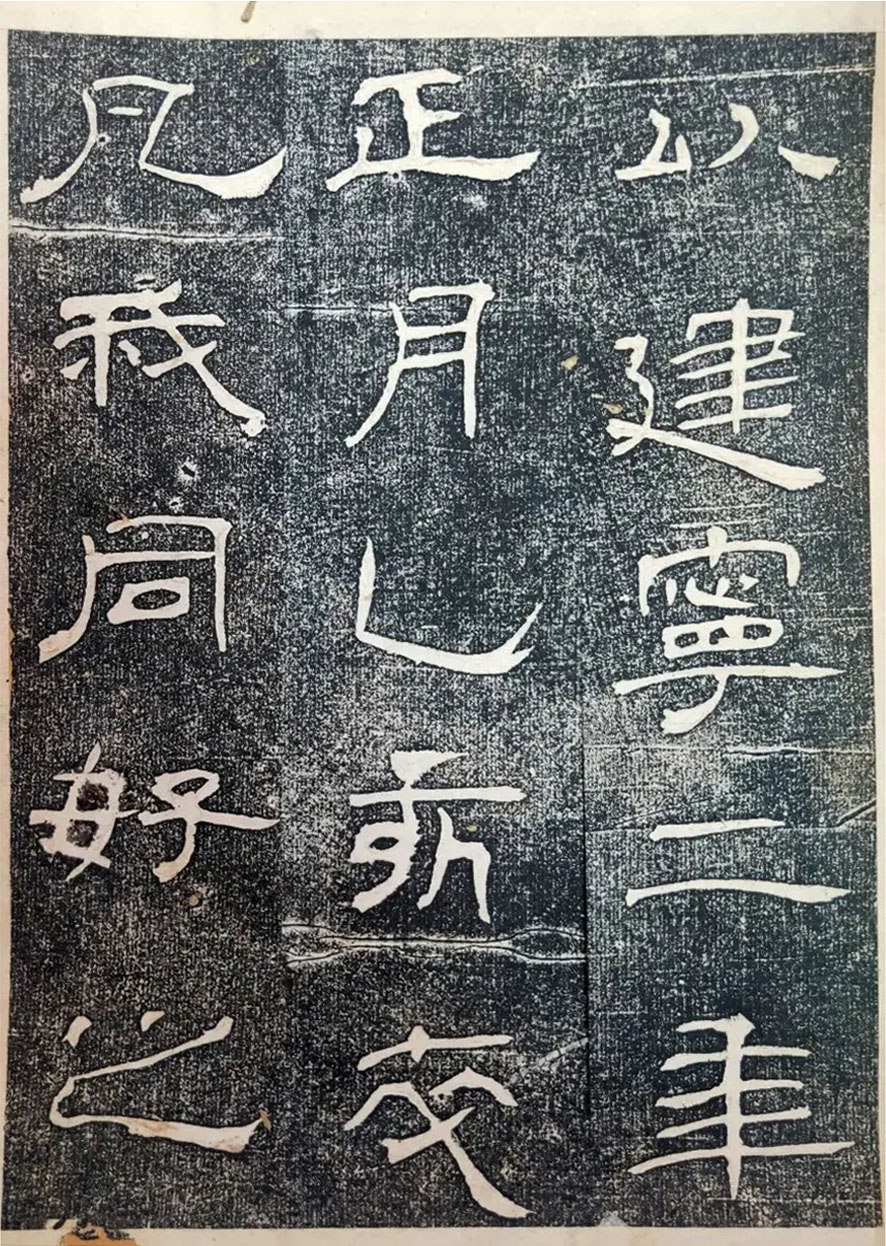 以建寧二年
正月乙亥卒
凡我同好之